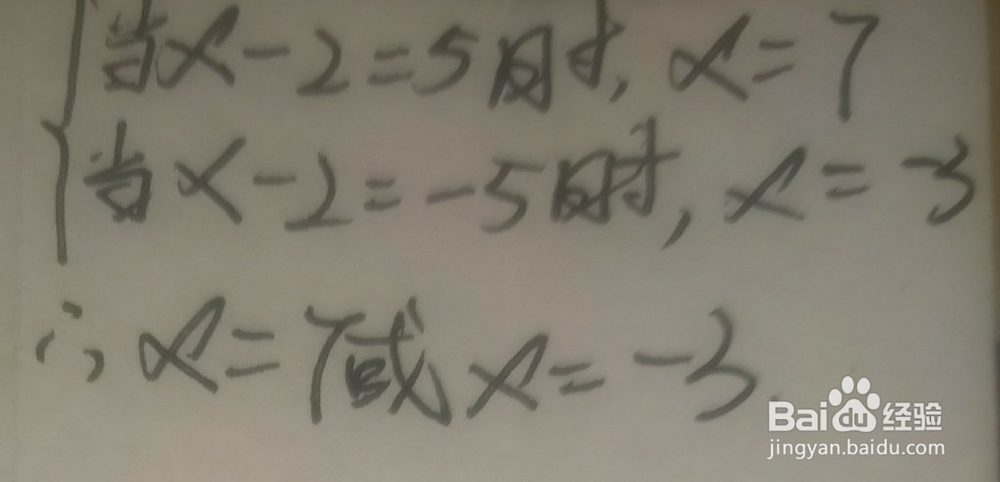 当x-2=5时, x=7
当x-2=-5时, x=-3
∴ x=7或x=-3.
Baidu经验
jingyan.baidu.com